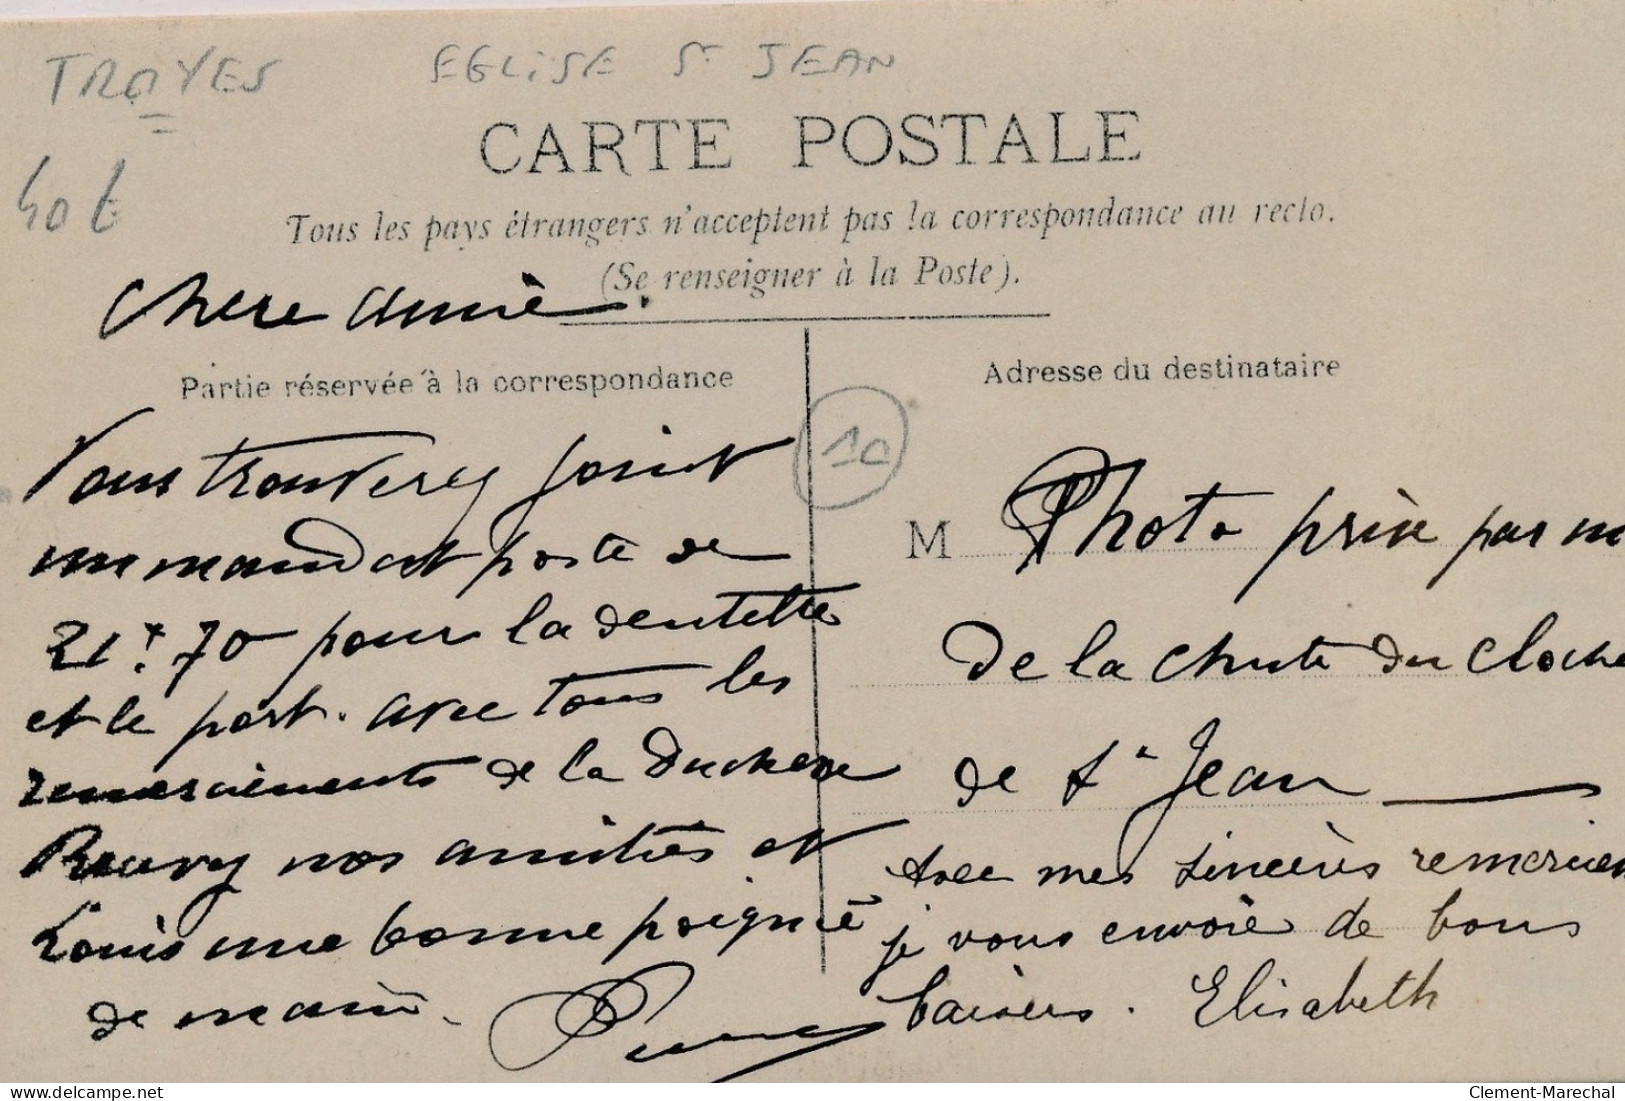 TROYES EGLISE St JEAN
CARTE POSTALE
40 €
Tous les pays étrangers n'acceptent pas la correspondance au recto.
(Se renseigner à la Poste).
Chere Amie
Partie réservée à la correspondance
Vous trouverez joint
un mandat poste de
21f 70 pour la dentelle
et le port. avec tous les
remerciements de la Duchesse
nos amitiés et
Louis une bonne poignée
de main.
10
Adresse du destinataire
M Photo prise par m
de la chute du cloche
de St Jean
Avec mes sincères remerciem
je vous envoie de bons
baisers. Elisabeth
Clement-Marechal